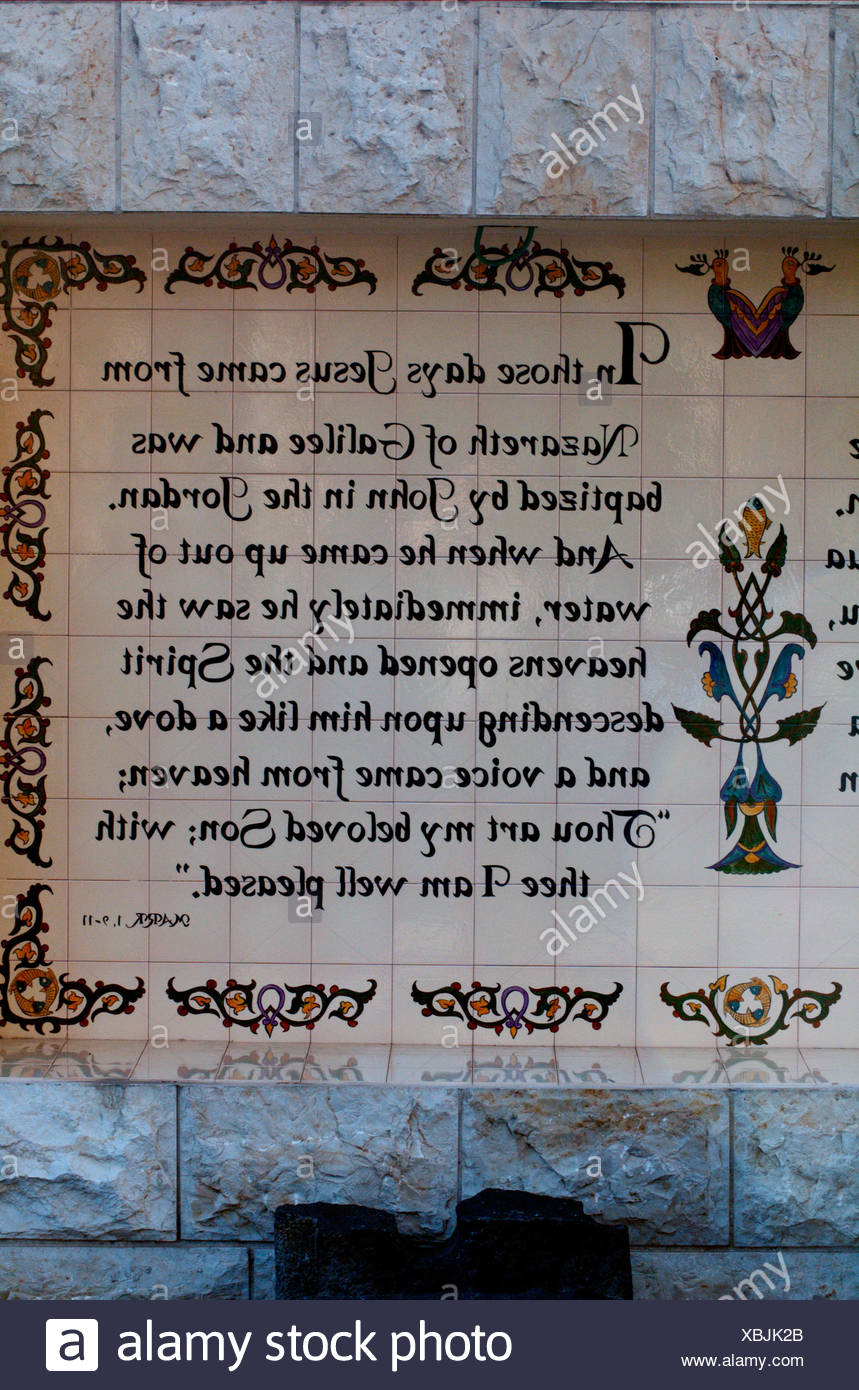 In those days Jesus came from
Nazareth of Galilee and was
baptized by John in the Jordan.
And when he came up out of
water, immediately he saw the
heavens opened and the Spirit
descending upon him like a dove,
and a voice came from heaven;
“Thou art my beloved Son; with
thee I am well pleased.”
MARK 1, 9-11
alamy
alamy
alamy
alamy
alamy
a alamy stock photo
XBJK2B
www.alamy.com